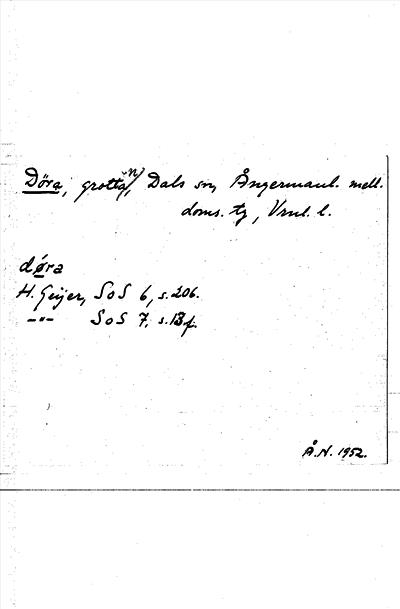 Döra, grotta(n), Dals sn, Ångermanl. mell.
doms. tg, Vnl. l.
døra
H. Geijer, SoS 6, s.206.
–"– SoS 7, s.13f.
Å.N. 1952.